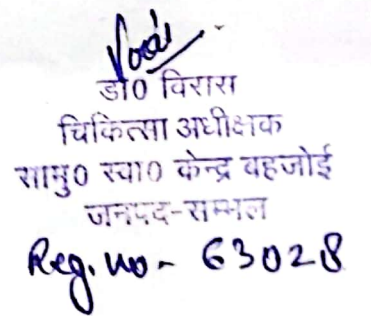 डा0 विरास
चिकित्सा अधीक्षक
सामु0 स्वा0 केन्द्र वहजोई
जनपद-सम्भल
Reg. no - 63028